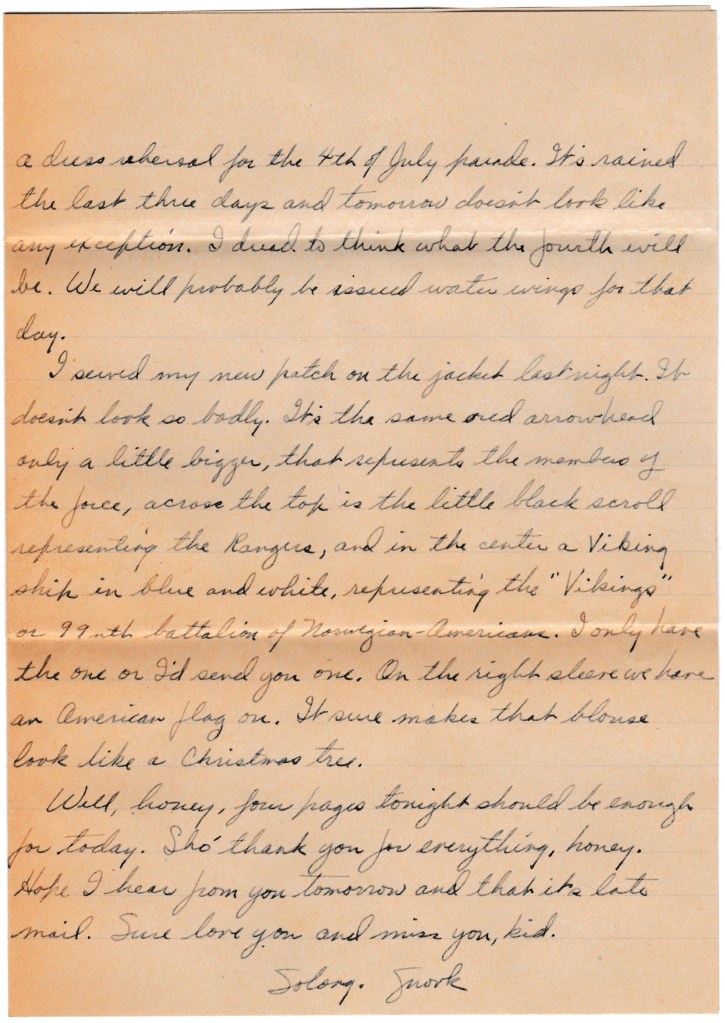 a dress rehersal for the 4th of July parade. It's rained
the last three days and tomorrow doesn't look like
any exception. I dread to think what the fourth will
be. We will probably be issued water wings for that
day.
I sewed my new patch on the jacket last night. It
doesn't look so badly. It's the same red arrowhead
only a little bigger, that represents the members of
the force, across the top is the little black scroll
representing the Rangers, and in the center a Viking
ship in blue and white, representing the "Vikings"
or 99nth battalion of Norwegian-Americans. I only have
the one or I'd send you one. On the right sleeve we have
an American flag on. It sure makes that blouse
look like a Christmas tree.
Well, honey, four pages tonight should be enough
for today. Sho' thank you for everything, honey.
Hope I hear from you tomorrow and that it's late
mail. Sure love you and miss you, kid.
Solong. Snork